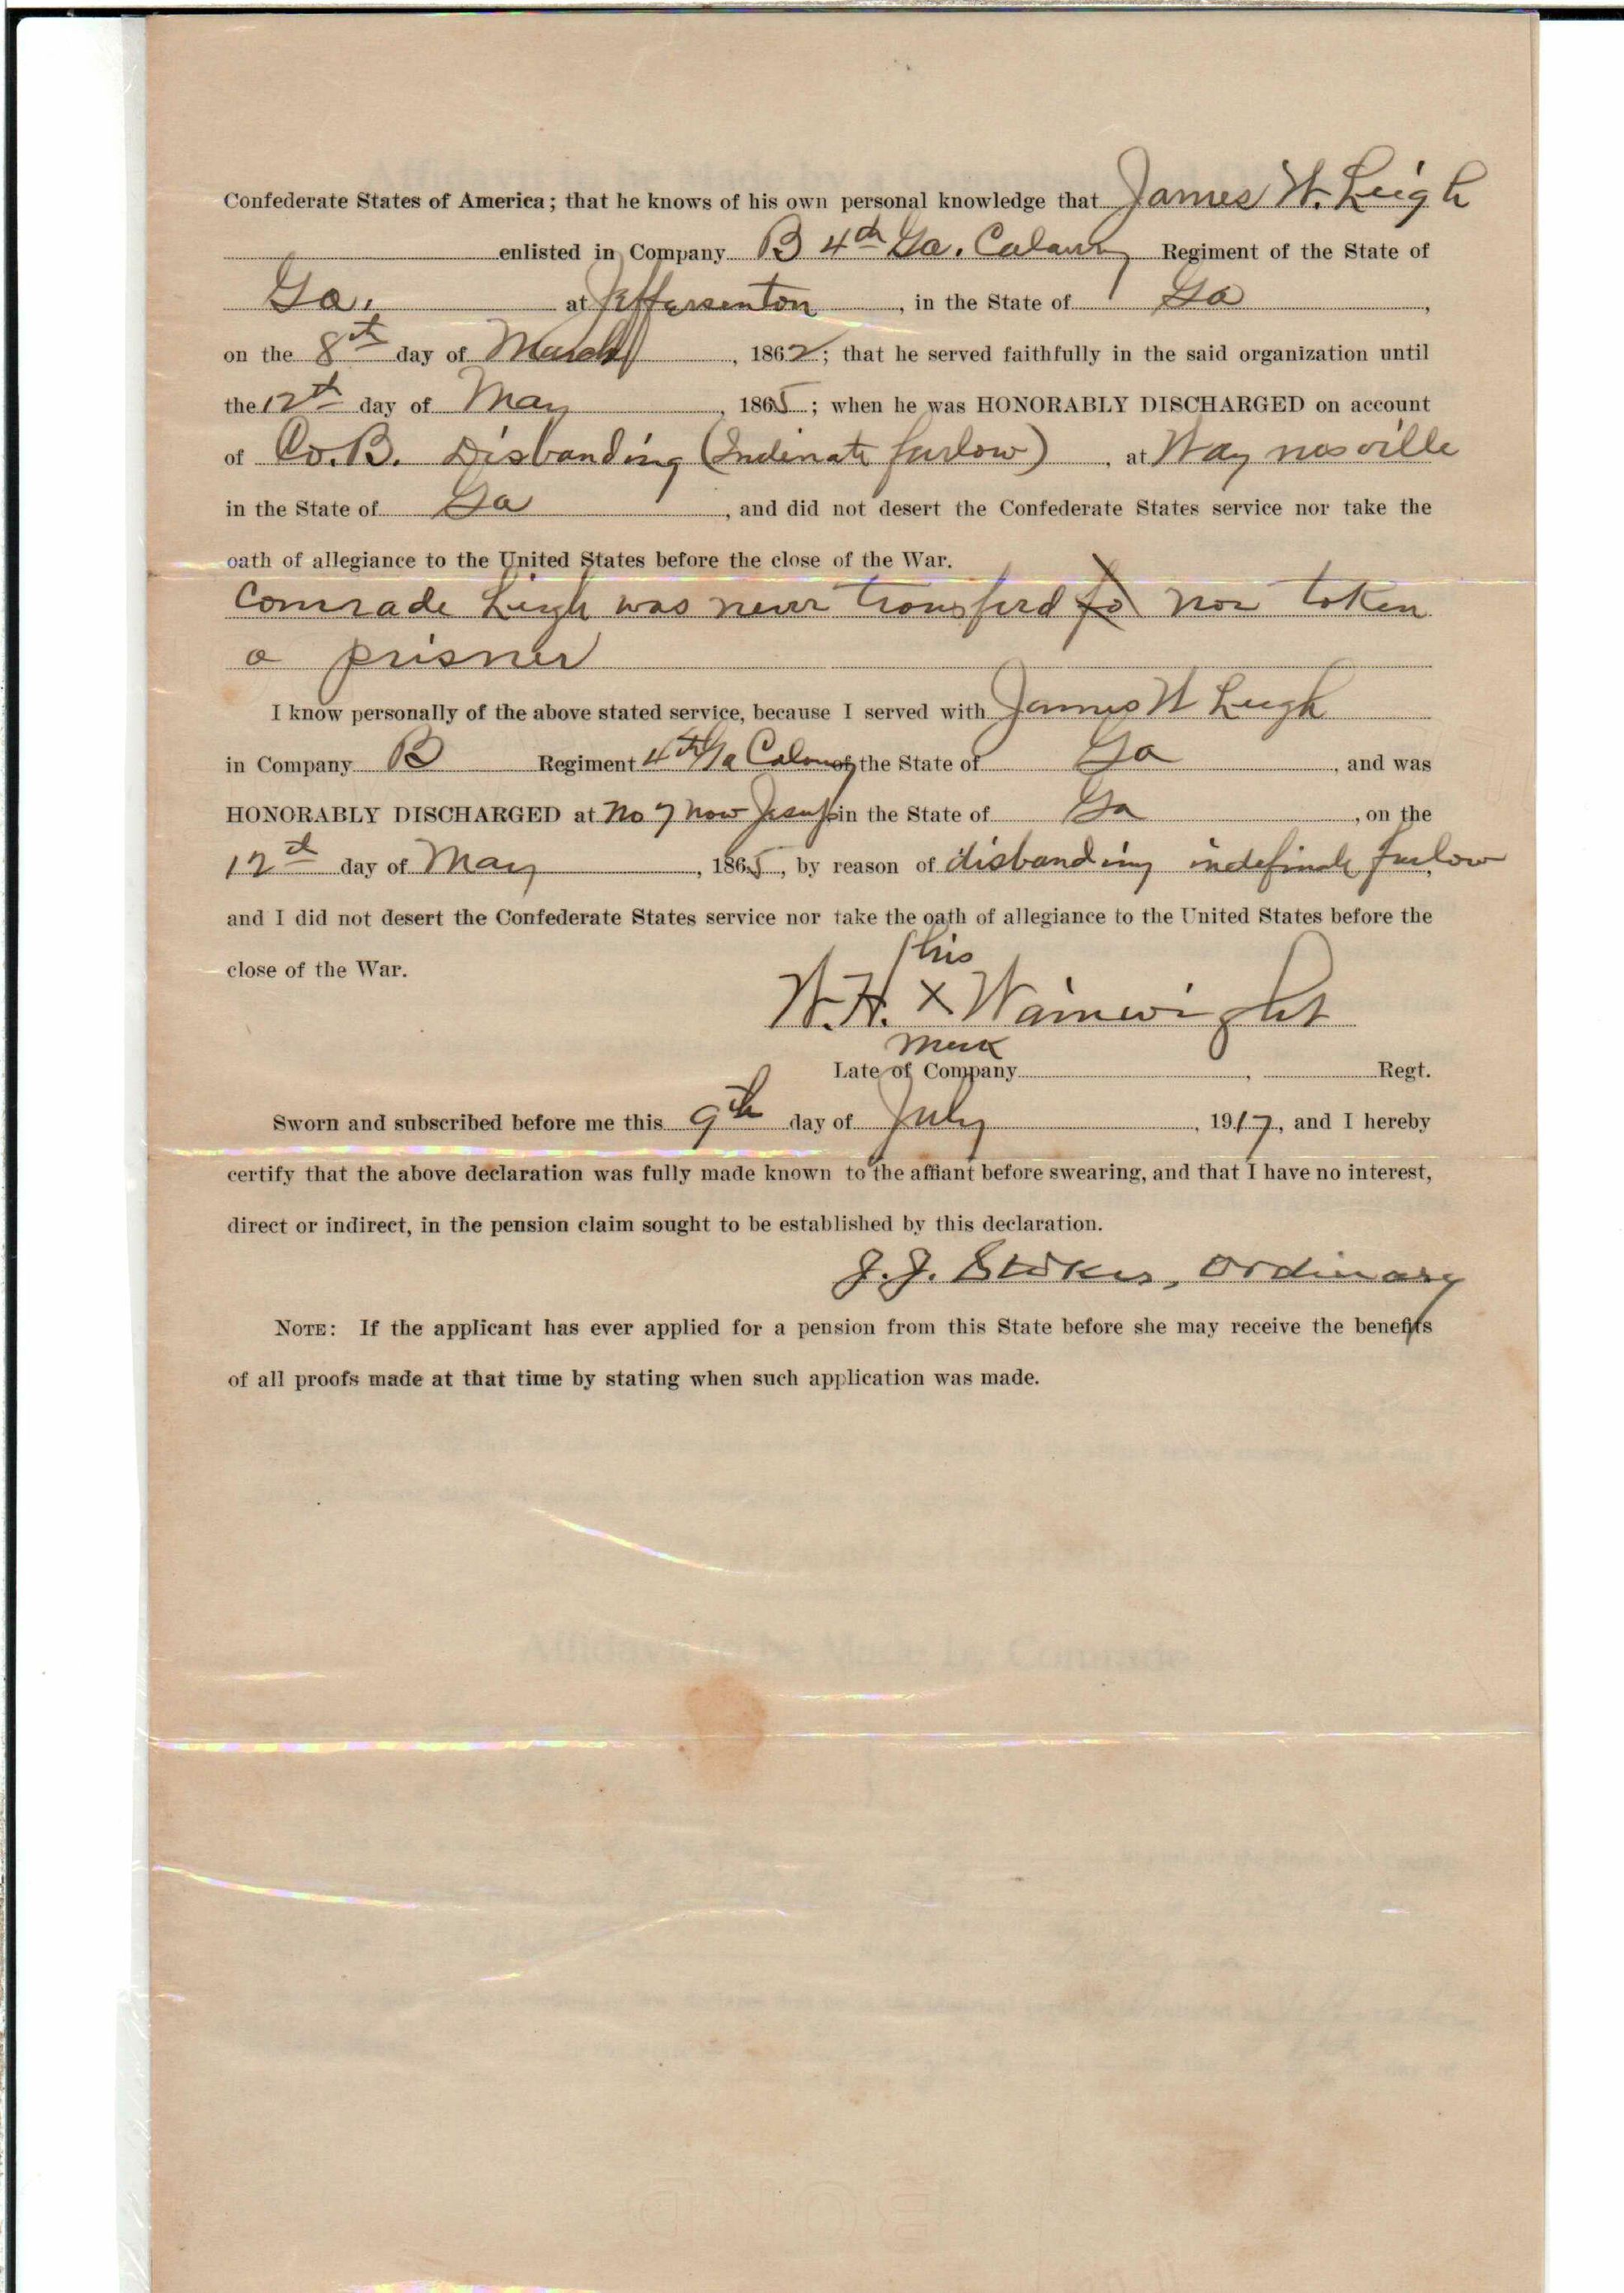 Confederate States of America; that he knows of his own personal knowledge that James W. Leigh
enlisted in Company B 4th Ga. Calavry Regiment of the State of
Ga. at Jeffersenton, in the State of Ga,
on the 8th day of March, 1862; that he served faithfully in the said organization until
the 12th day of May, 1865; when he was HONORABLY DISCHARGED on account
of Co. B. Disbanding (Indenate furlow), at Waynesville
in the State of Ga, and did not desert the Confederate States service nor take the
oath of allegiance to the United States before the close of the War.
Comrade Leigh was never transferd to nor token
a prisner
I know personally of the above stated service, because I served with James W Leigh
in Company B Regiment 4th Ga of the State of Ga, and was
HONORABLY DISCHARGED at No 7 now Jesup in the State of Ga, on the
12th day of May, 1865, by reason of disbanding indefinde furlow
and I did not desert the Confederate States service nor take the oath of allegiance to the United States before the
close of the War.
his
W. H. X Wainwright
mark
Late of Company, Regt.
Sworn and subscribed before me this 9th day of July, 1917, and I hereby
certify that the above declaration was fully made known to the affiant before swearing, and that I have no interest,
direct or indirect, in the pension claim sought to be established by this declaration.
J. J. Stokes, Ordinary
NOTE: If the applicant has ever applied for a pension from this State before she may receive the benefits
of all proofs made at that time by stating when such application was made.